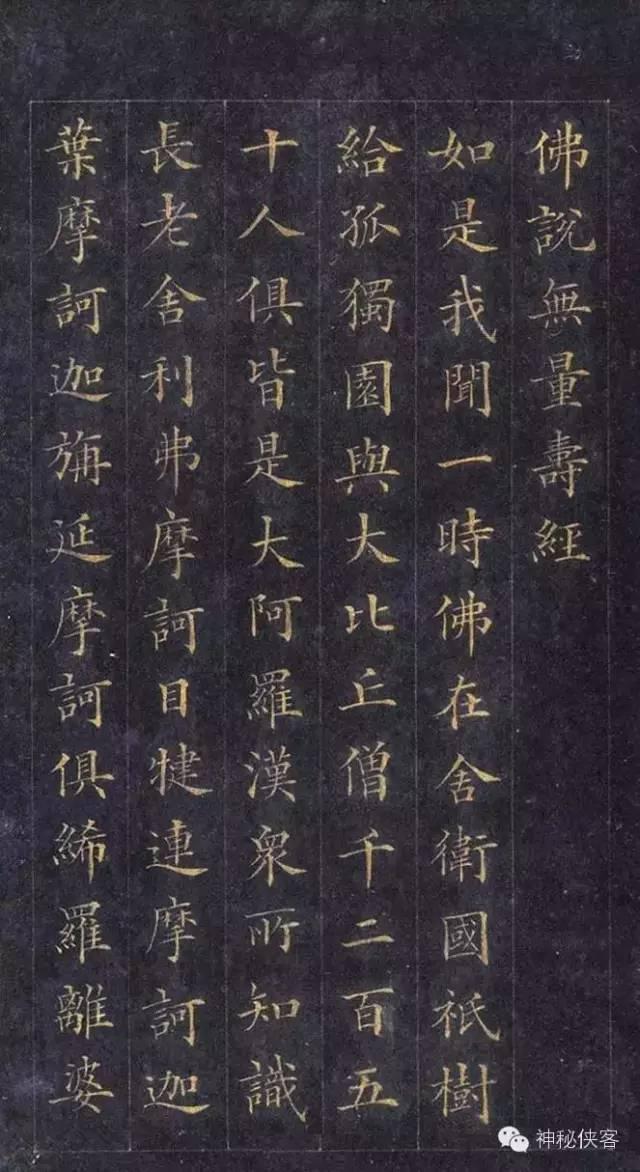 佛說無量壽經
如是我聞一時佛在舍衛國祇樹
給孤獨園與大比丘僧千二百五
十人俱皆是大阿羅漢衆所知識
長老舍利弗摩訶目犍連摩訶迦
葉摩訶迦旃延摩訶俱絺羅離婆
神秘侠客